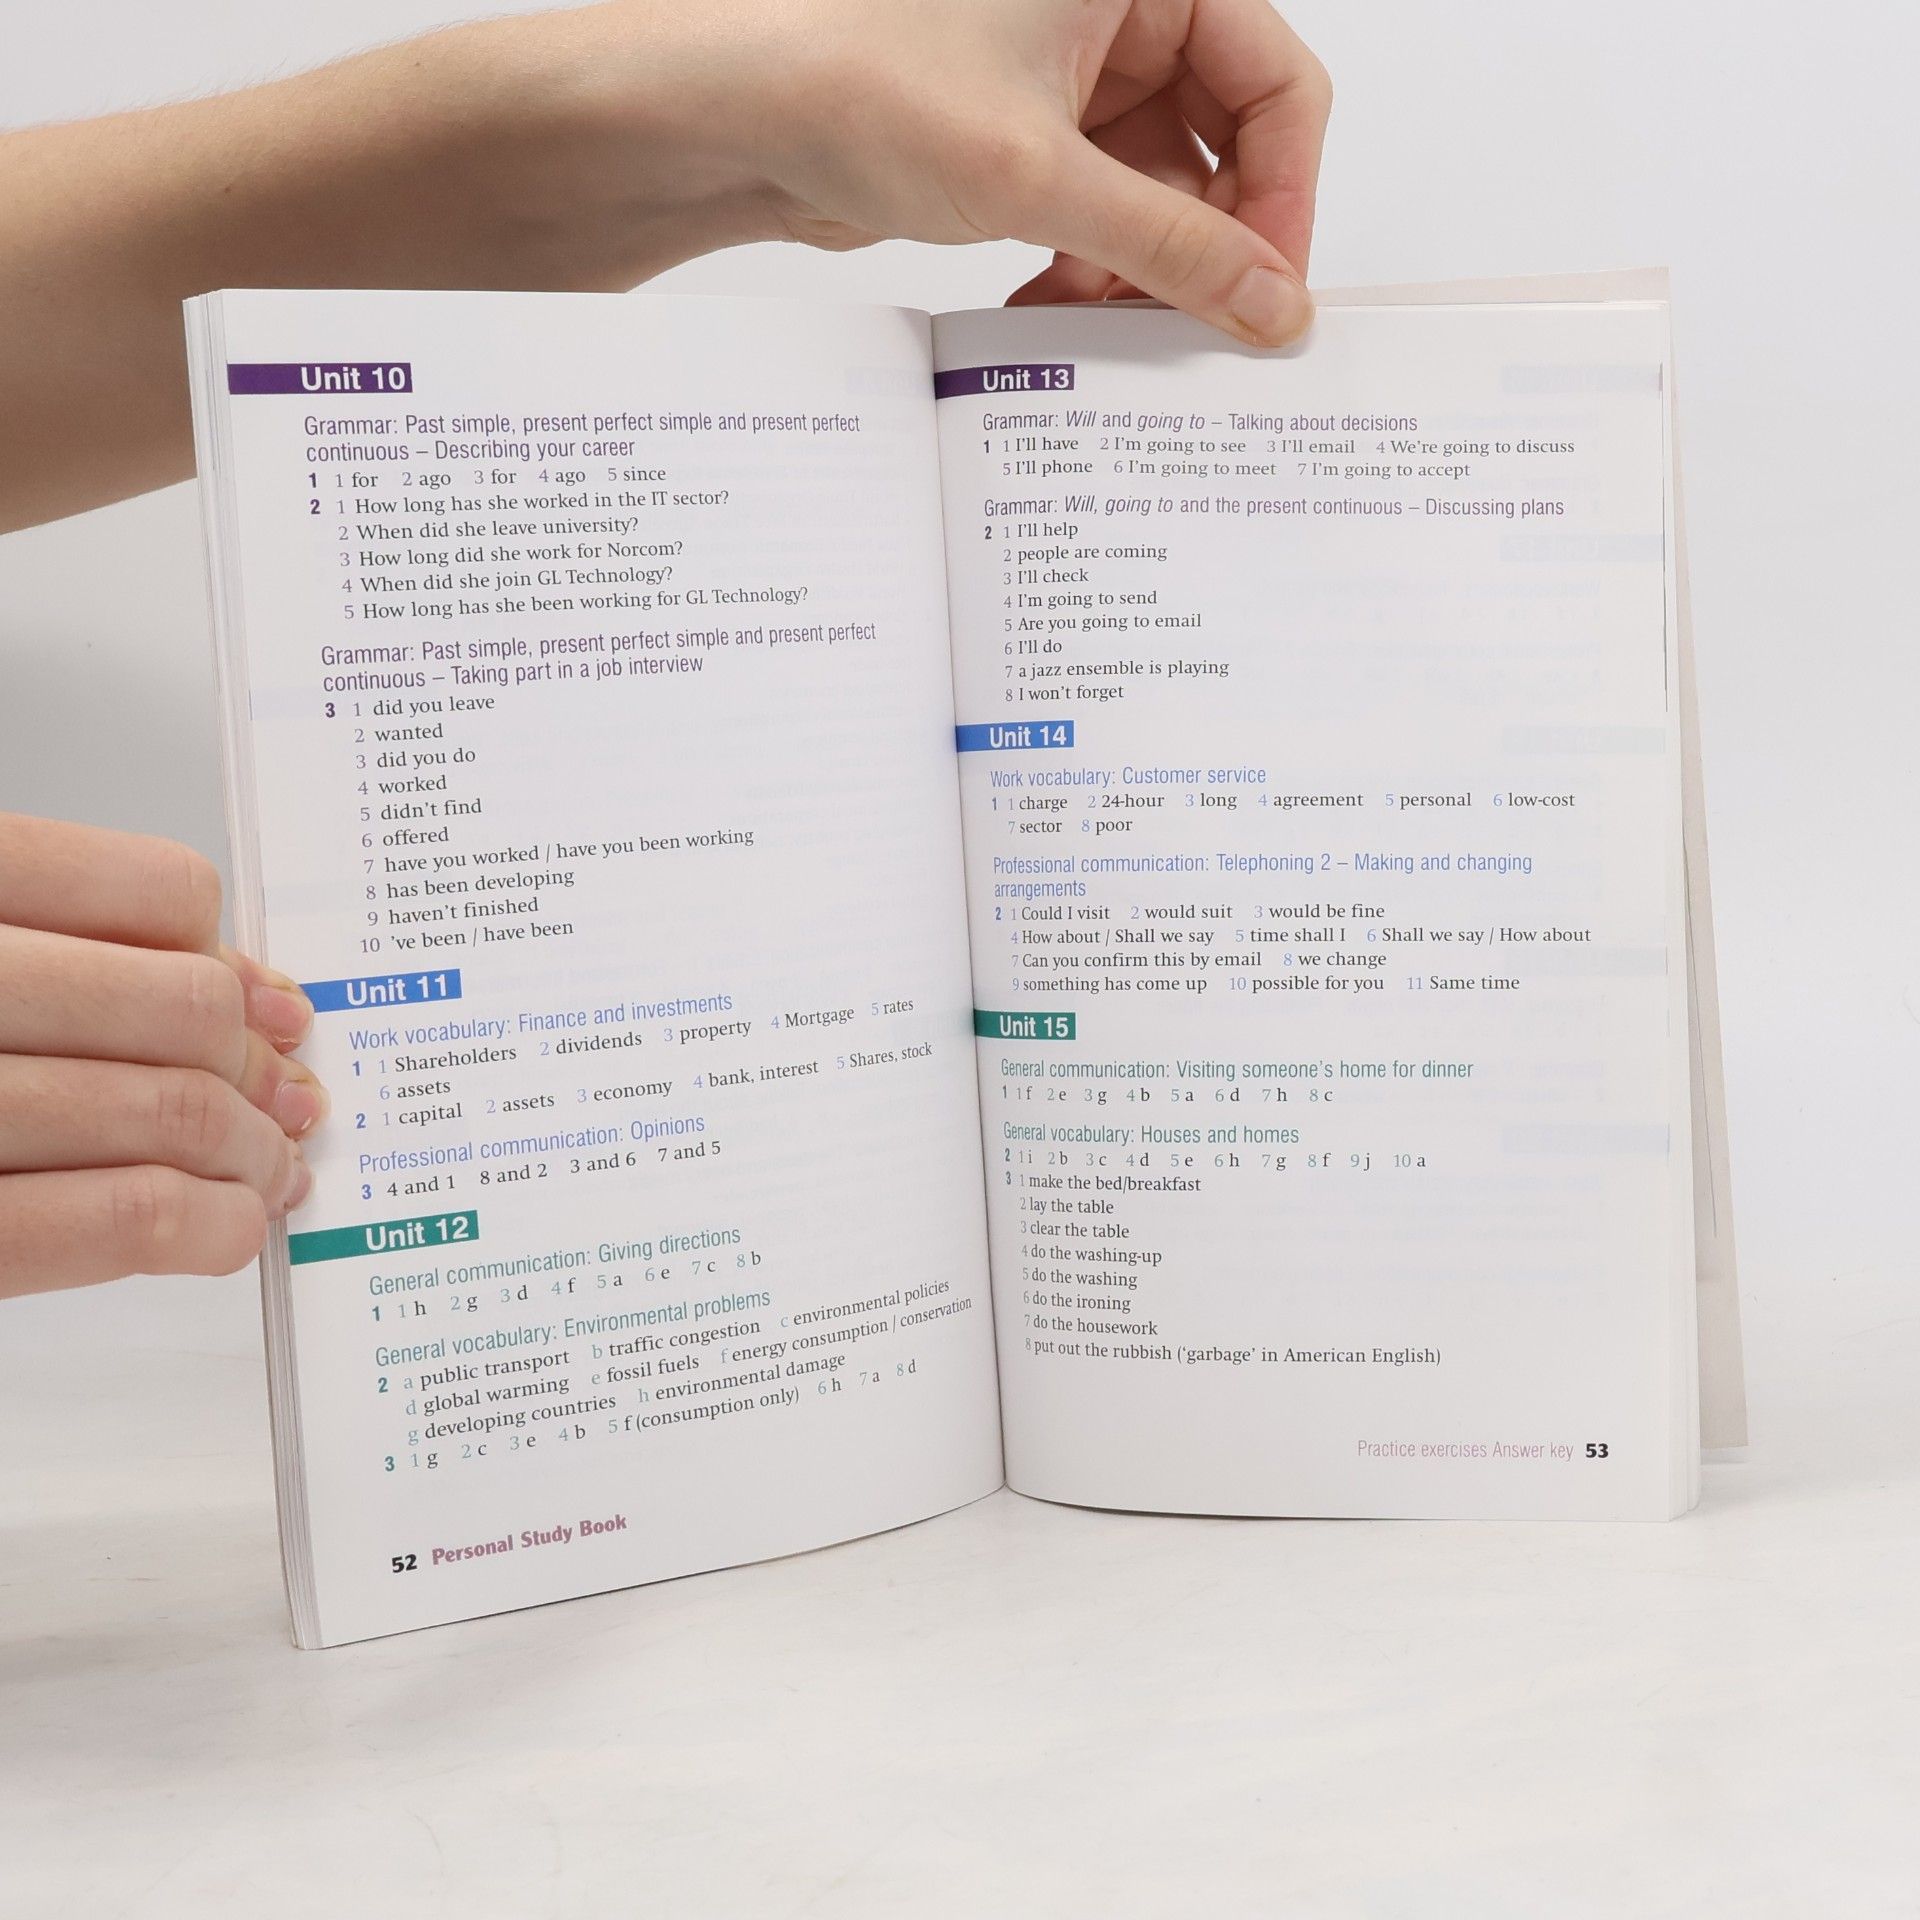 Unit 10
Grammar: Past simple, present perfect simple and present perfect
continuous – Describing your career
1 1 for 2 ago 3 for 4 ago 5 since
2 1 How long has she worked in the IT sector?
2 When did she leave university?
3 How long did she work for Norcom?
4 When did she join GL Technology?
5 How long has she been working for GL Technology?
Grammar: Past simple, present perfect simple and present perfect
continuous – Taking part in a job interview
3 1 did you leave
2 wanted
3 did you do
4 worked
5 didn't find
6 offered
7 have you worked / have you been working
8 has been developing
9 haven't finished
10 've been / have been
Unit 11
Work vocabulary: Finance and investments
1 1 Shareholders 2 dividends 3 property 4 Mortgage 5 rates
6 assets
2 1 capital 2 assets 3 economy 4 bank, interest 5 Shares, stock
Professional communication: Opinions
3 4 and 1 8 and 2 3 and 6 7 and 5
Unit 12
General communication: Giving directions
1 1 h 2 g 3 d 4 f 5 a 6 e 7 c 8 b
General vocabulary: Environmental problems
2 a public transport b traffic congestion c environmental policies
d global warming e fossil fuels f energy consumption / conservation
g developing countries h environmental damage
3 1 g 2 c 3 e 4 b 5 f (consumption only) 6 h 7 a 8 d
52 Personal Study Book
Unit 13
Grammar: Will and going to – Talking about decisions
1 1 I'll have 2 I'm going to see 3 I'll email 4 We're going to discuss
5 I'll phone 6 I'm going to meet 7 I'm going to accept
Grammar: Will, going to and the present continuous – Discussing plans
2 1 I'll help
2 people are coming
3 I'll check
4 I'm going to send
5 Are you going to email
6 I'll do
7 a jazz ensemble is playing
8 I won't forget
Unit 14
Work vocabulary: Customer service
1 1 charge 2 24-hour 3 long 4 agreement 5 personal 6 low-cost
7 sector 8 poor
Professional communication: Telephoning 2 – Making and changing
arrangements
2 1 Could I visit 2 would suit 3 would be fine
4 How about / Shall we say 5 time shall I 6 Shall we say / How about
7 Can you confirm this by email 8 we change
9 something has come up 10 possible for you 11 Same time
Unit 15
General communication: Visiting someone's home for dinner
1 1 f 2 e 3 g 4 b 5 a 6 d 7 h 8 c
General vocabulary: Houses and homes
2 1 i 2 b 3 c 4 d 5 e 6 h 7 g 8 f 9 j 10 a
3 1 make the bed/breakfast
2 lay the table
3 clear the table
4 do the washing-up
5 do the washing
6 do the ironing
7 do the housework
8 put out the rubbish ('garbage' in American English)
Practice exercises Answer key 53